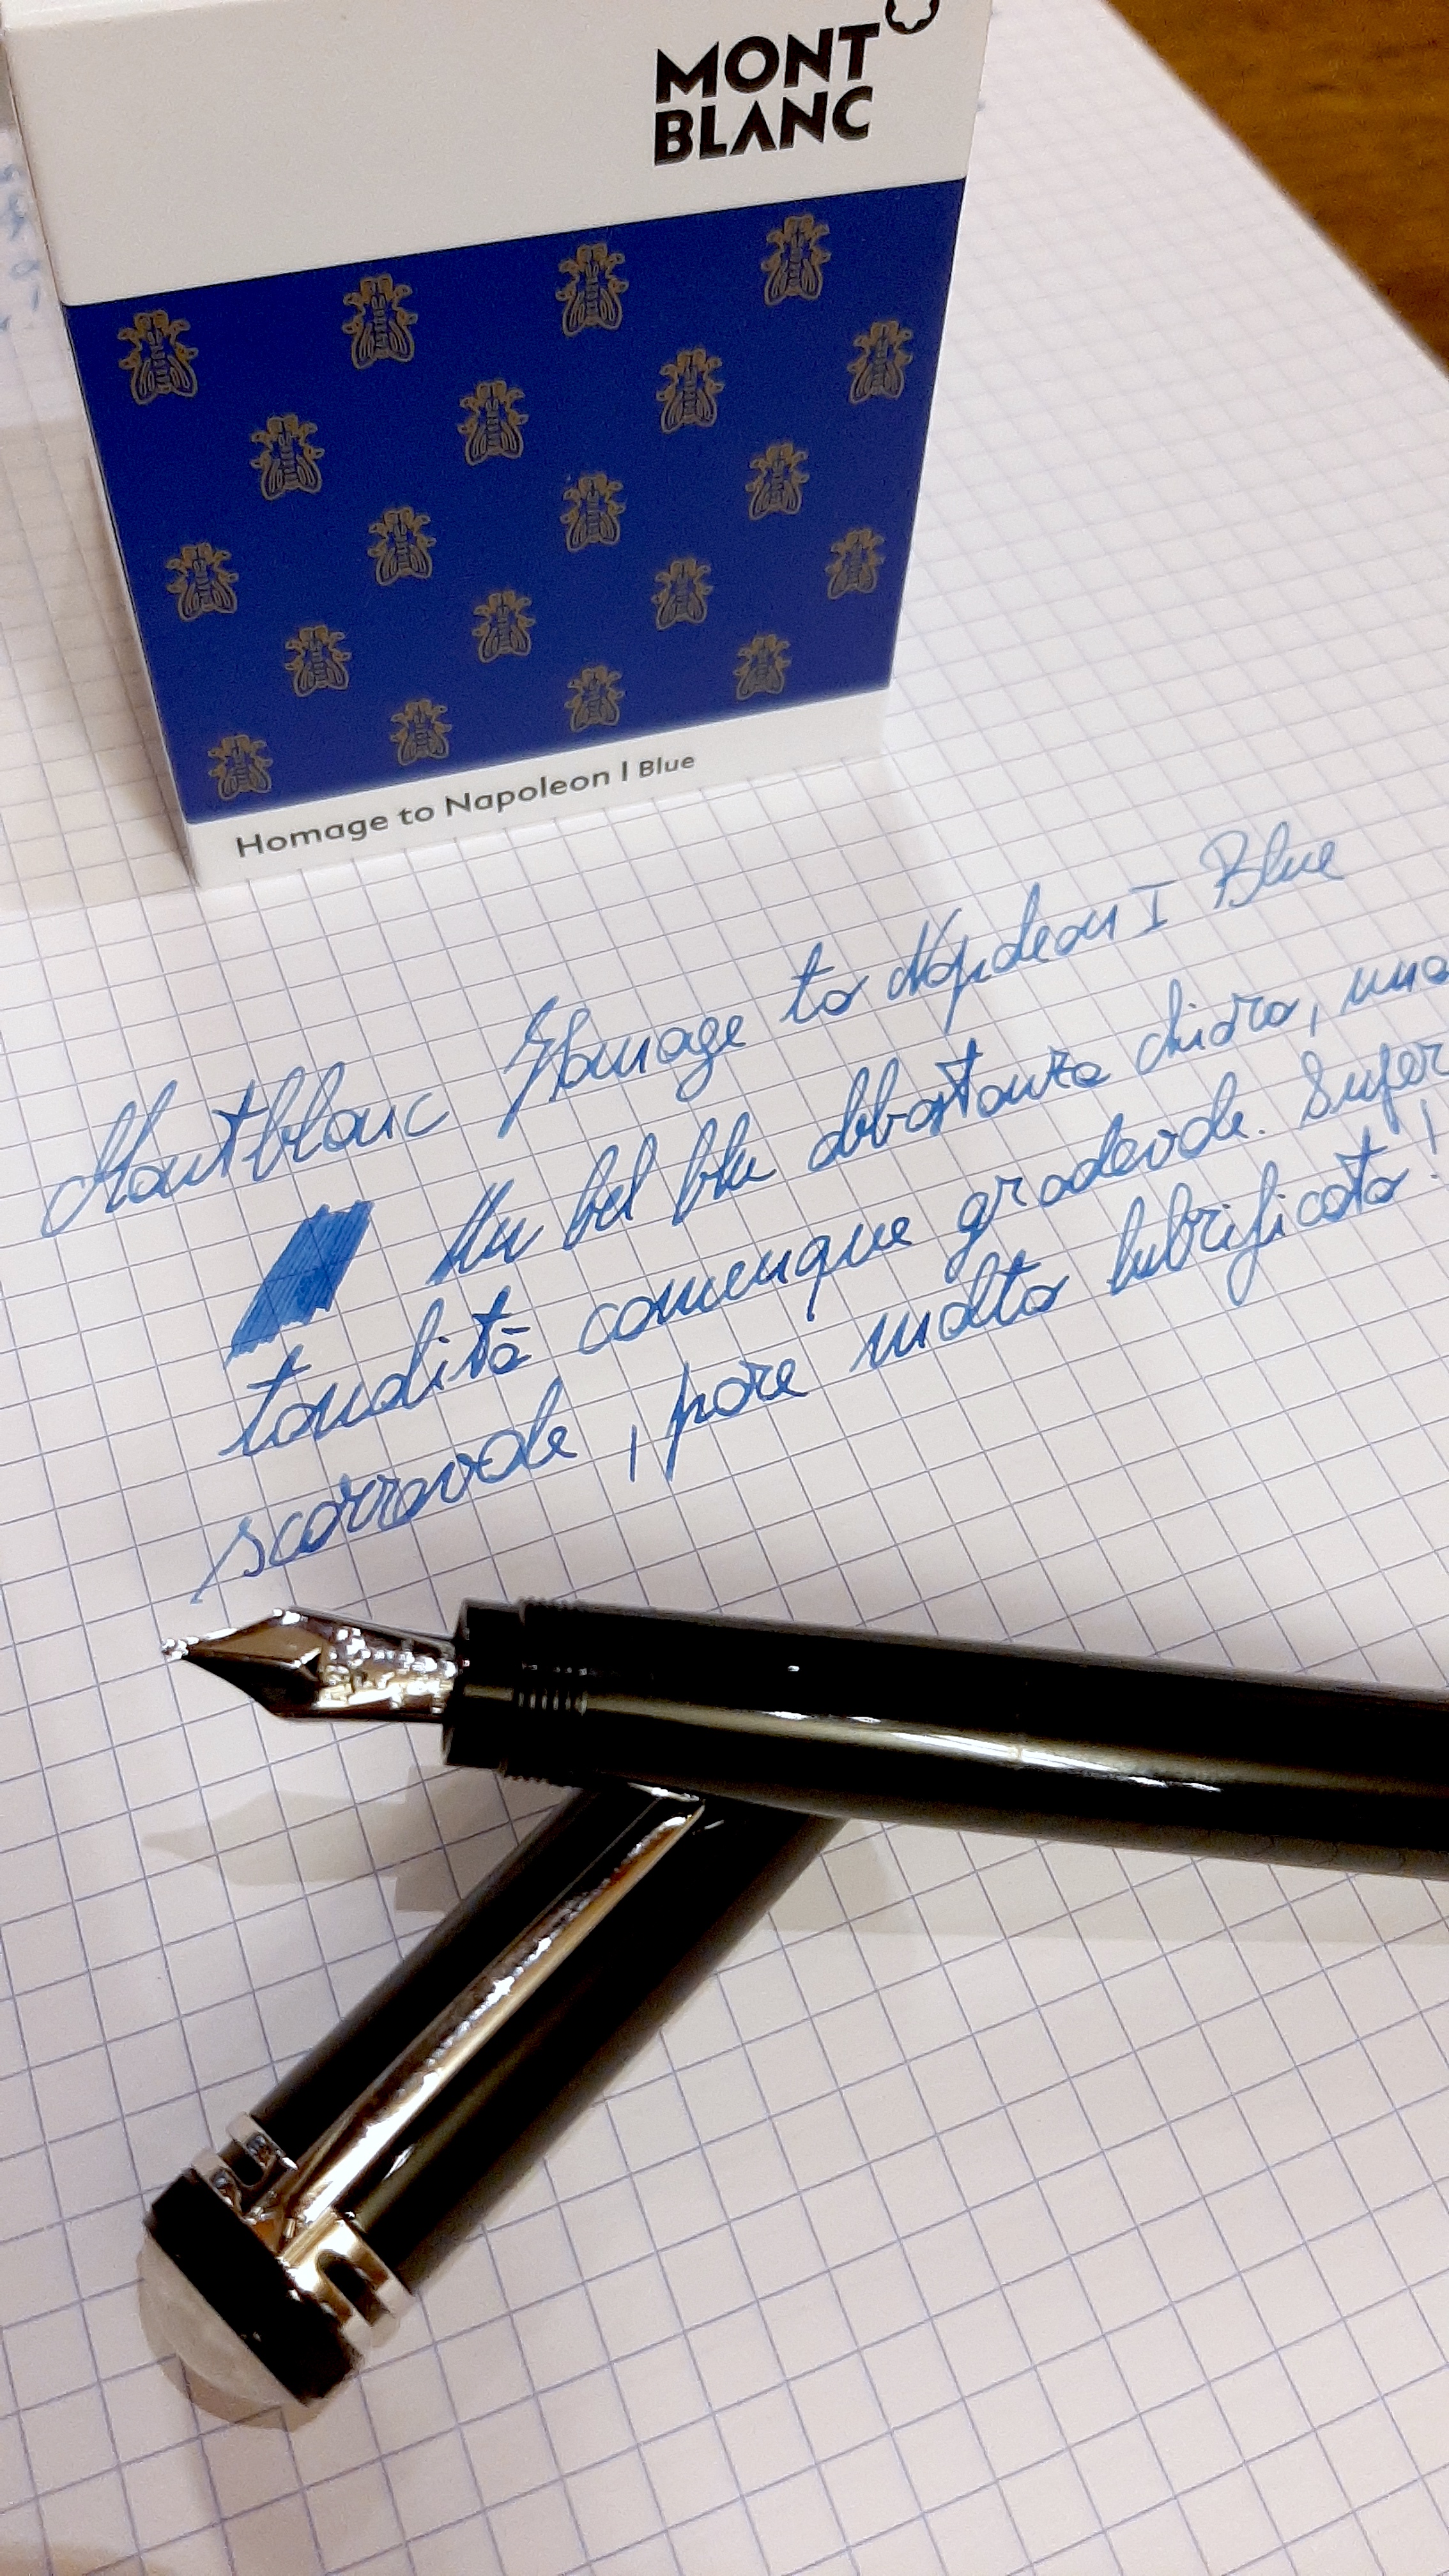 MONT
BLANC
Homage to Napoleon I Blue
Montblanc Homage to Napoleon I Blue
Un bel blu abbastanza chiaro, una
tonalità comunque gradevole. Super
scorrevole, pare molto lubrificato!